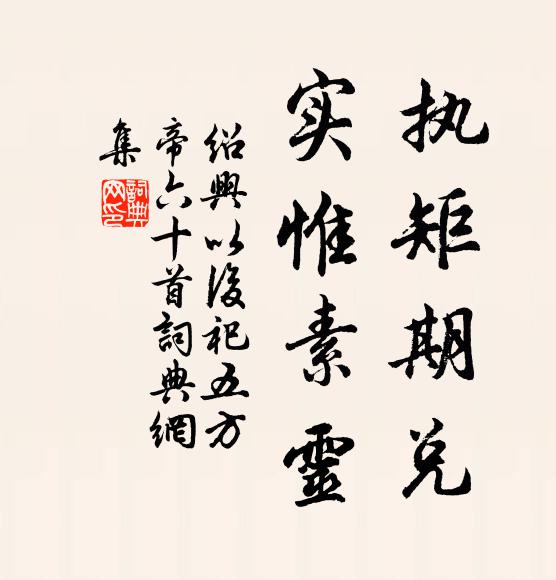 执矩期兑
实惟素靈
绍興以後祀五方
帝六十首詞典網
集
詞典
网印